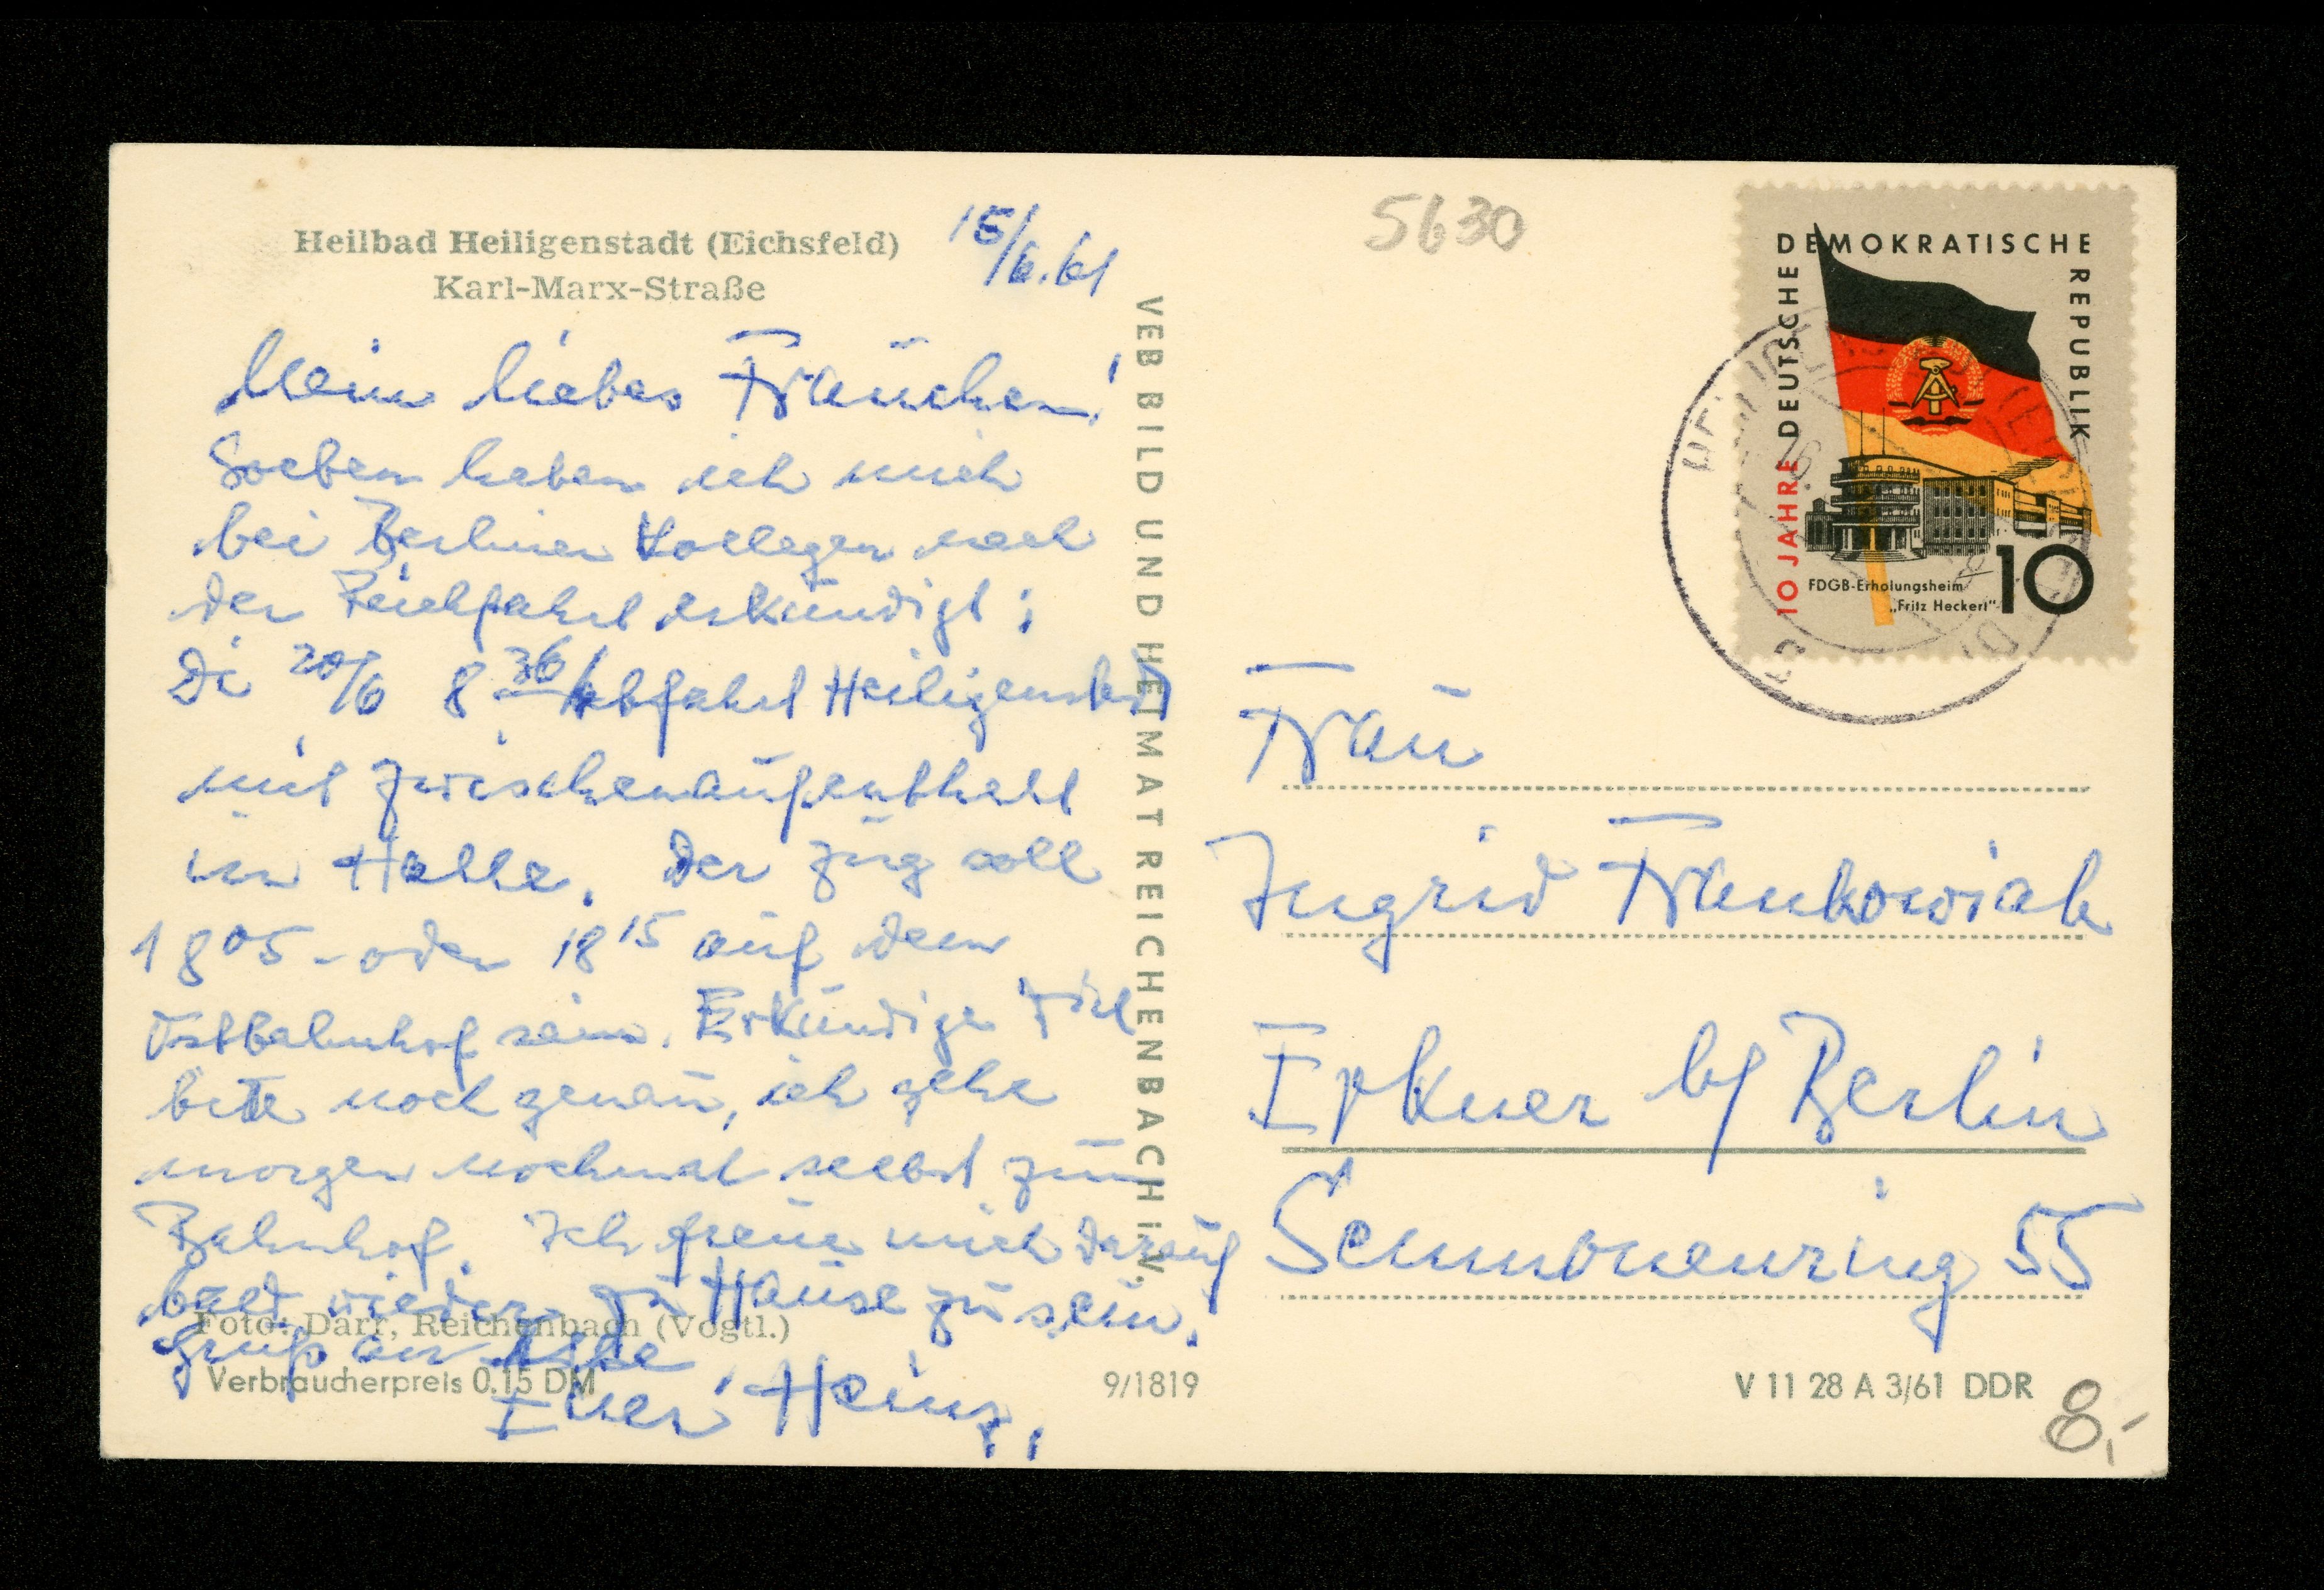 Heilbad Heiligenstadt (Eichsfeld)
Karl-Marx-Straße
15/6.61
Mein liebes Fräuchen!
Soeben haben ich mich
bei Berliner Kollegen nach
der Rückfahrt erkündigt;
Di 20/6 8 36 Abfahrt Heiligenstadt
mit Zwischenaufenthalt
in Halle. Der Zug soll
18 05 - oder 18 15 auf dem
Ostbahnhof sein. Erkundige Dich
bitte noch genau, ich gehe
morgen nochmal selbst zum
Bahnhof. Ich freue mich darauf
bald wieder zu Hause zu sein.
Gruß an
Euer Heinz,
Foto: Darr, Reichenbach (Vogtl.)
Verbraucherpreis 0.15 DM
9/1819
VEB BILD UND HEIMAT REICHENBACH I. V.
5630
10 JAHRE DEUTSCHE DEMOKRATISCHE REPUBLIK
FDGB-Erholungsheim
„Fritz Heckert"
10
Frau
Ingrid Frankowiak
Erkner b/ Berlin
55
V 11 28 A 3/61 DDR
8,-